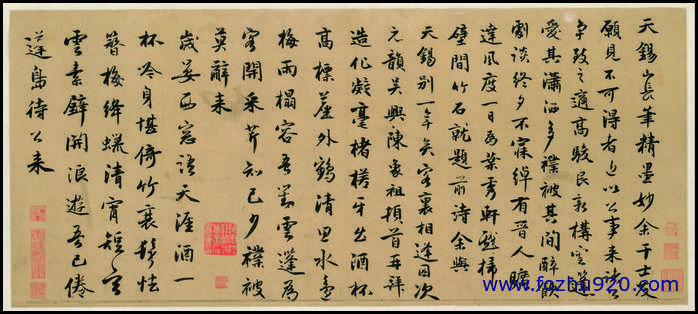 天錫山長筆精墨妙余干士友
願見不可得者也以公事來諸公
爭致之適高駿民新構雲蓬
愛其瀟洒多襆被其間醉飲
劇談終夕不寐綽有晉人曠
達風度一日為葉秀軒戲掃
壁間竹石就題前詩余與
天錫別一年矣客裏相逢因次
元韻吳興陳象祖頓首再拜
造化凝毫楮槎牙出酒杯
高標崖外鶴清思水邊
梅雨榻容吾對雲蓬為
客開采芹知己夕襆被
莫辭來
歲晏西窓語天涯酒一
杯冷身堪倚竹衰鬢怯
簪梅絳蠟清宵短玄
雲素壁開浪遊吾已倦
蓬島待公來
www.fozhu920.com